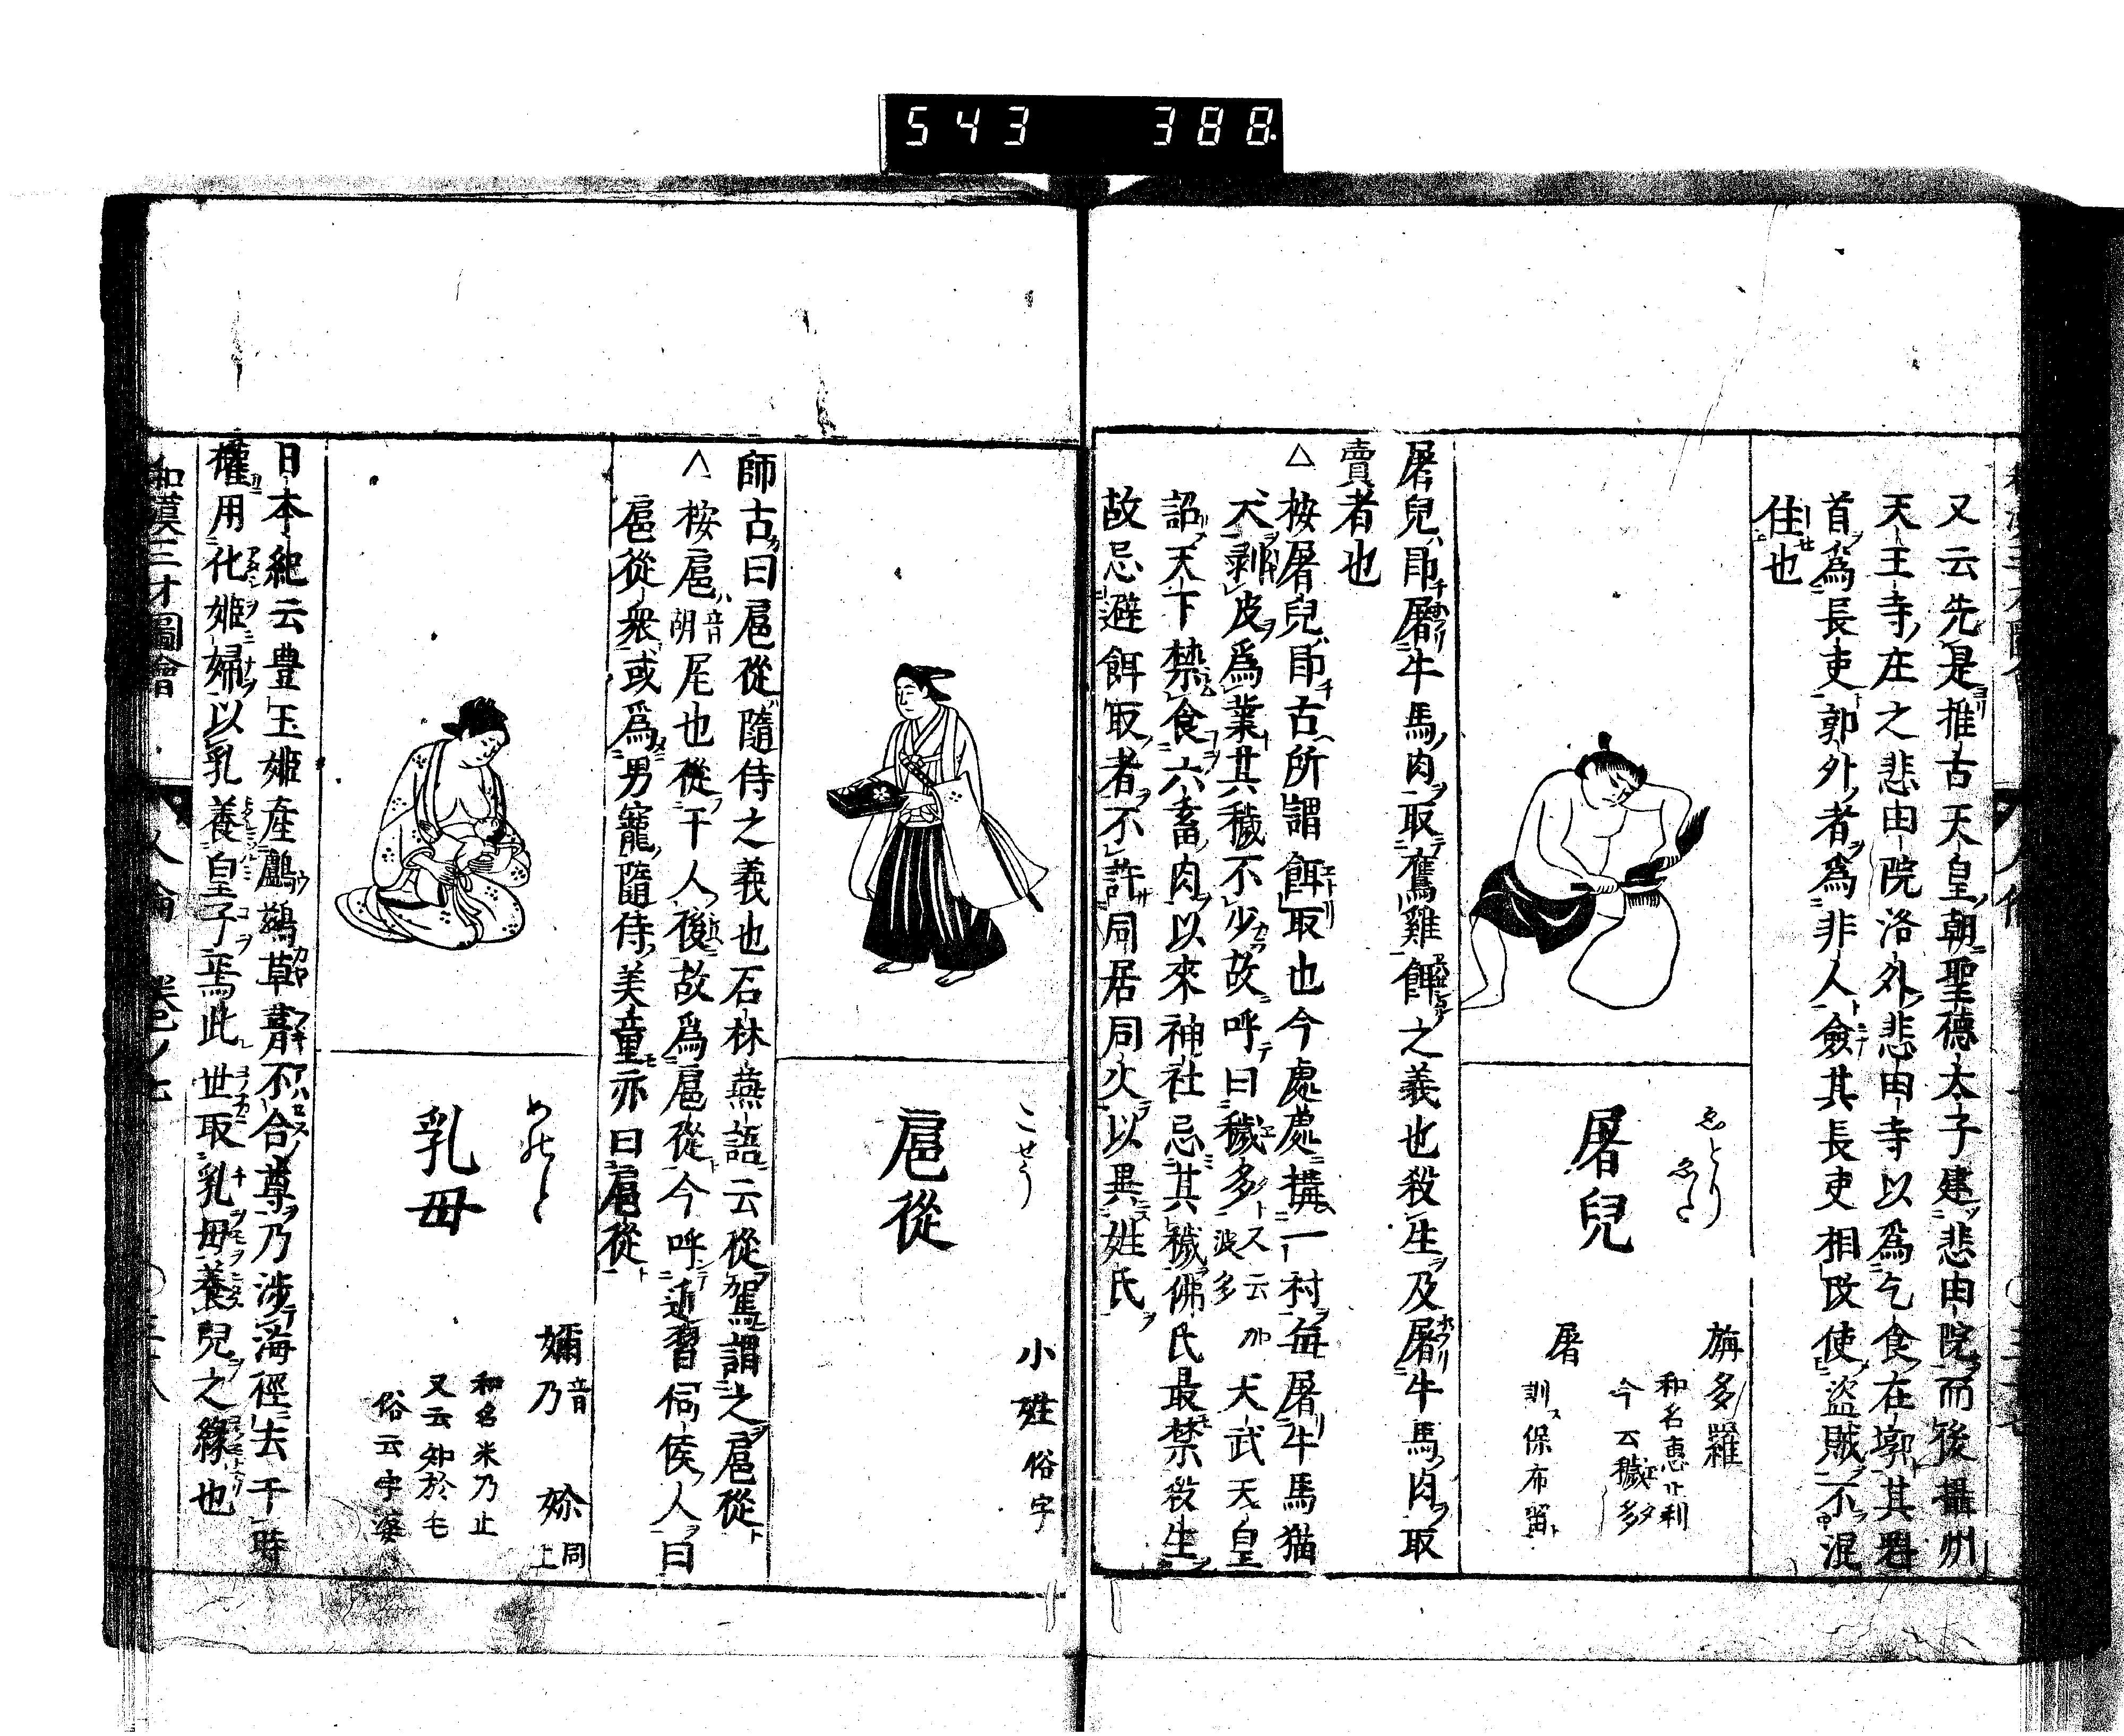 543 388
又云先是推古天皇朝聖德太子建悲田院而後攝州
天王寺庄之悲田院洛外悲田寺以爲乞食在墎其魁
首爲長吏郭外者爲非人僉其長吏相改使盗賊不混
住也
ゑとり
ゑた
屠兒
旃多羅
和名惠止利
今云穢多
屠
訓保布留
屠兒卽屠牛馬肉取鷹雞餌之義也殺生及屠牛馬肉取
賣者也
△按屠兒卽古所謂餌取也今處處搆一村每屠牛馬猫
犬剥皮爲業其穢不少故呼曰穢多又云加波多天武天皇
詔天下禁食六畜肉以來神社忌其穢佛氏最禁殺生
故忌避餌取者不許同居同火以異姓氏
こせう
扈從
小姓俗字
師古曰扈從隨侍之義也石林燕語云從駕謂之扈從
△按扈音胡尾也從于人後故爲扈從今呼近習伺侯人曰
扈從衆或爲男寵隨侍美童亦曰扈從
めのと
乳母
嬭音乃 㚷同上
和名米乃止
又云知於毛
俗云宇婆
日本紀云豊玉姬產鸕鷀草葺不合尊乃涉海徑去于時
權用化姬婦以乳養皇子焉此世取乳母養兒之緣也
和漢三才圖會 人倫 卷之七